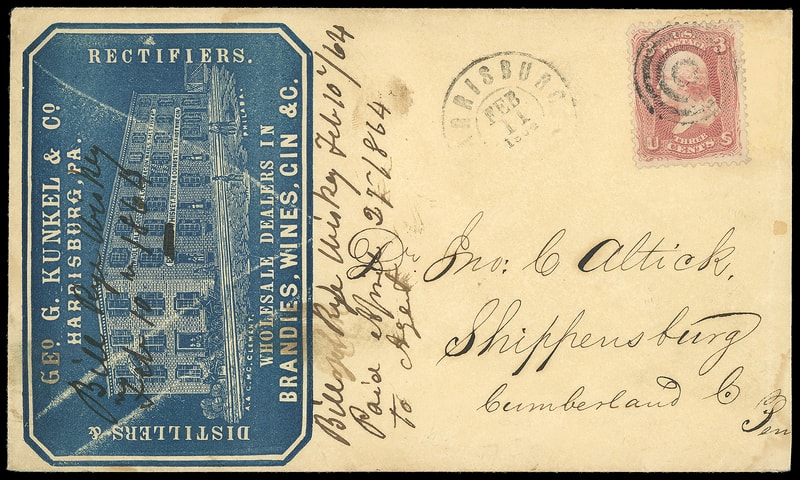 RECTIFIERS.
GEO. G. KUNKEL & CO
HARRISBURG, PA.
WHOLESALE DEALERS IN
BRANDIES, WINES, GIN &C.
DISTILLERS &
PHILADA.
Bill Rye Wisky
Feb 10th 1864
Bill Rye Wisky Feb 10th/64
Paid 27 1864
to
ARRISBURG
FEB
11
3 U.S. POSTAGE 3
U THREE S
CENTS
Dr. Jno: C Altick,
Shippensburg
Cumberland Co
Pen